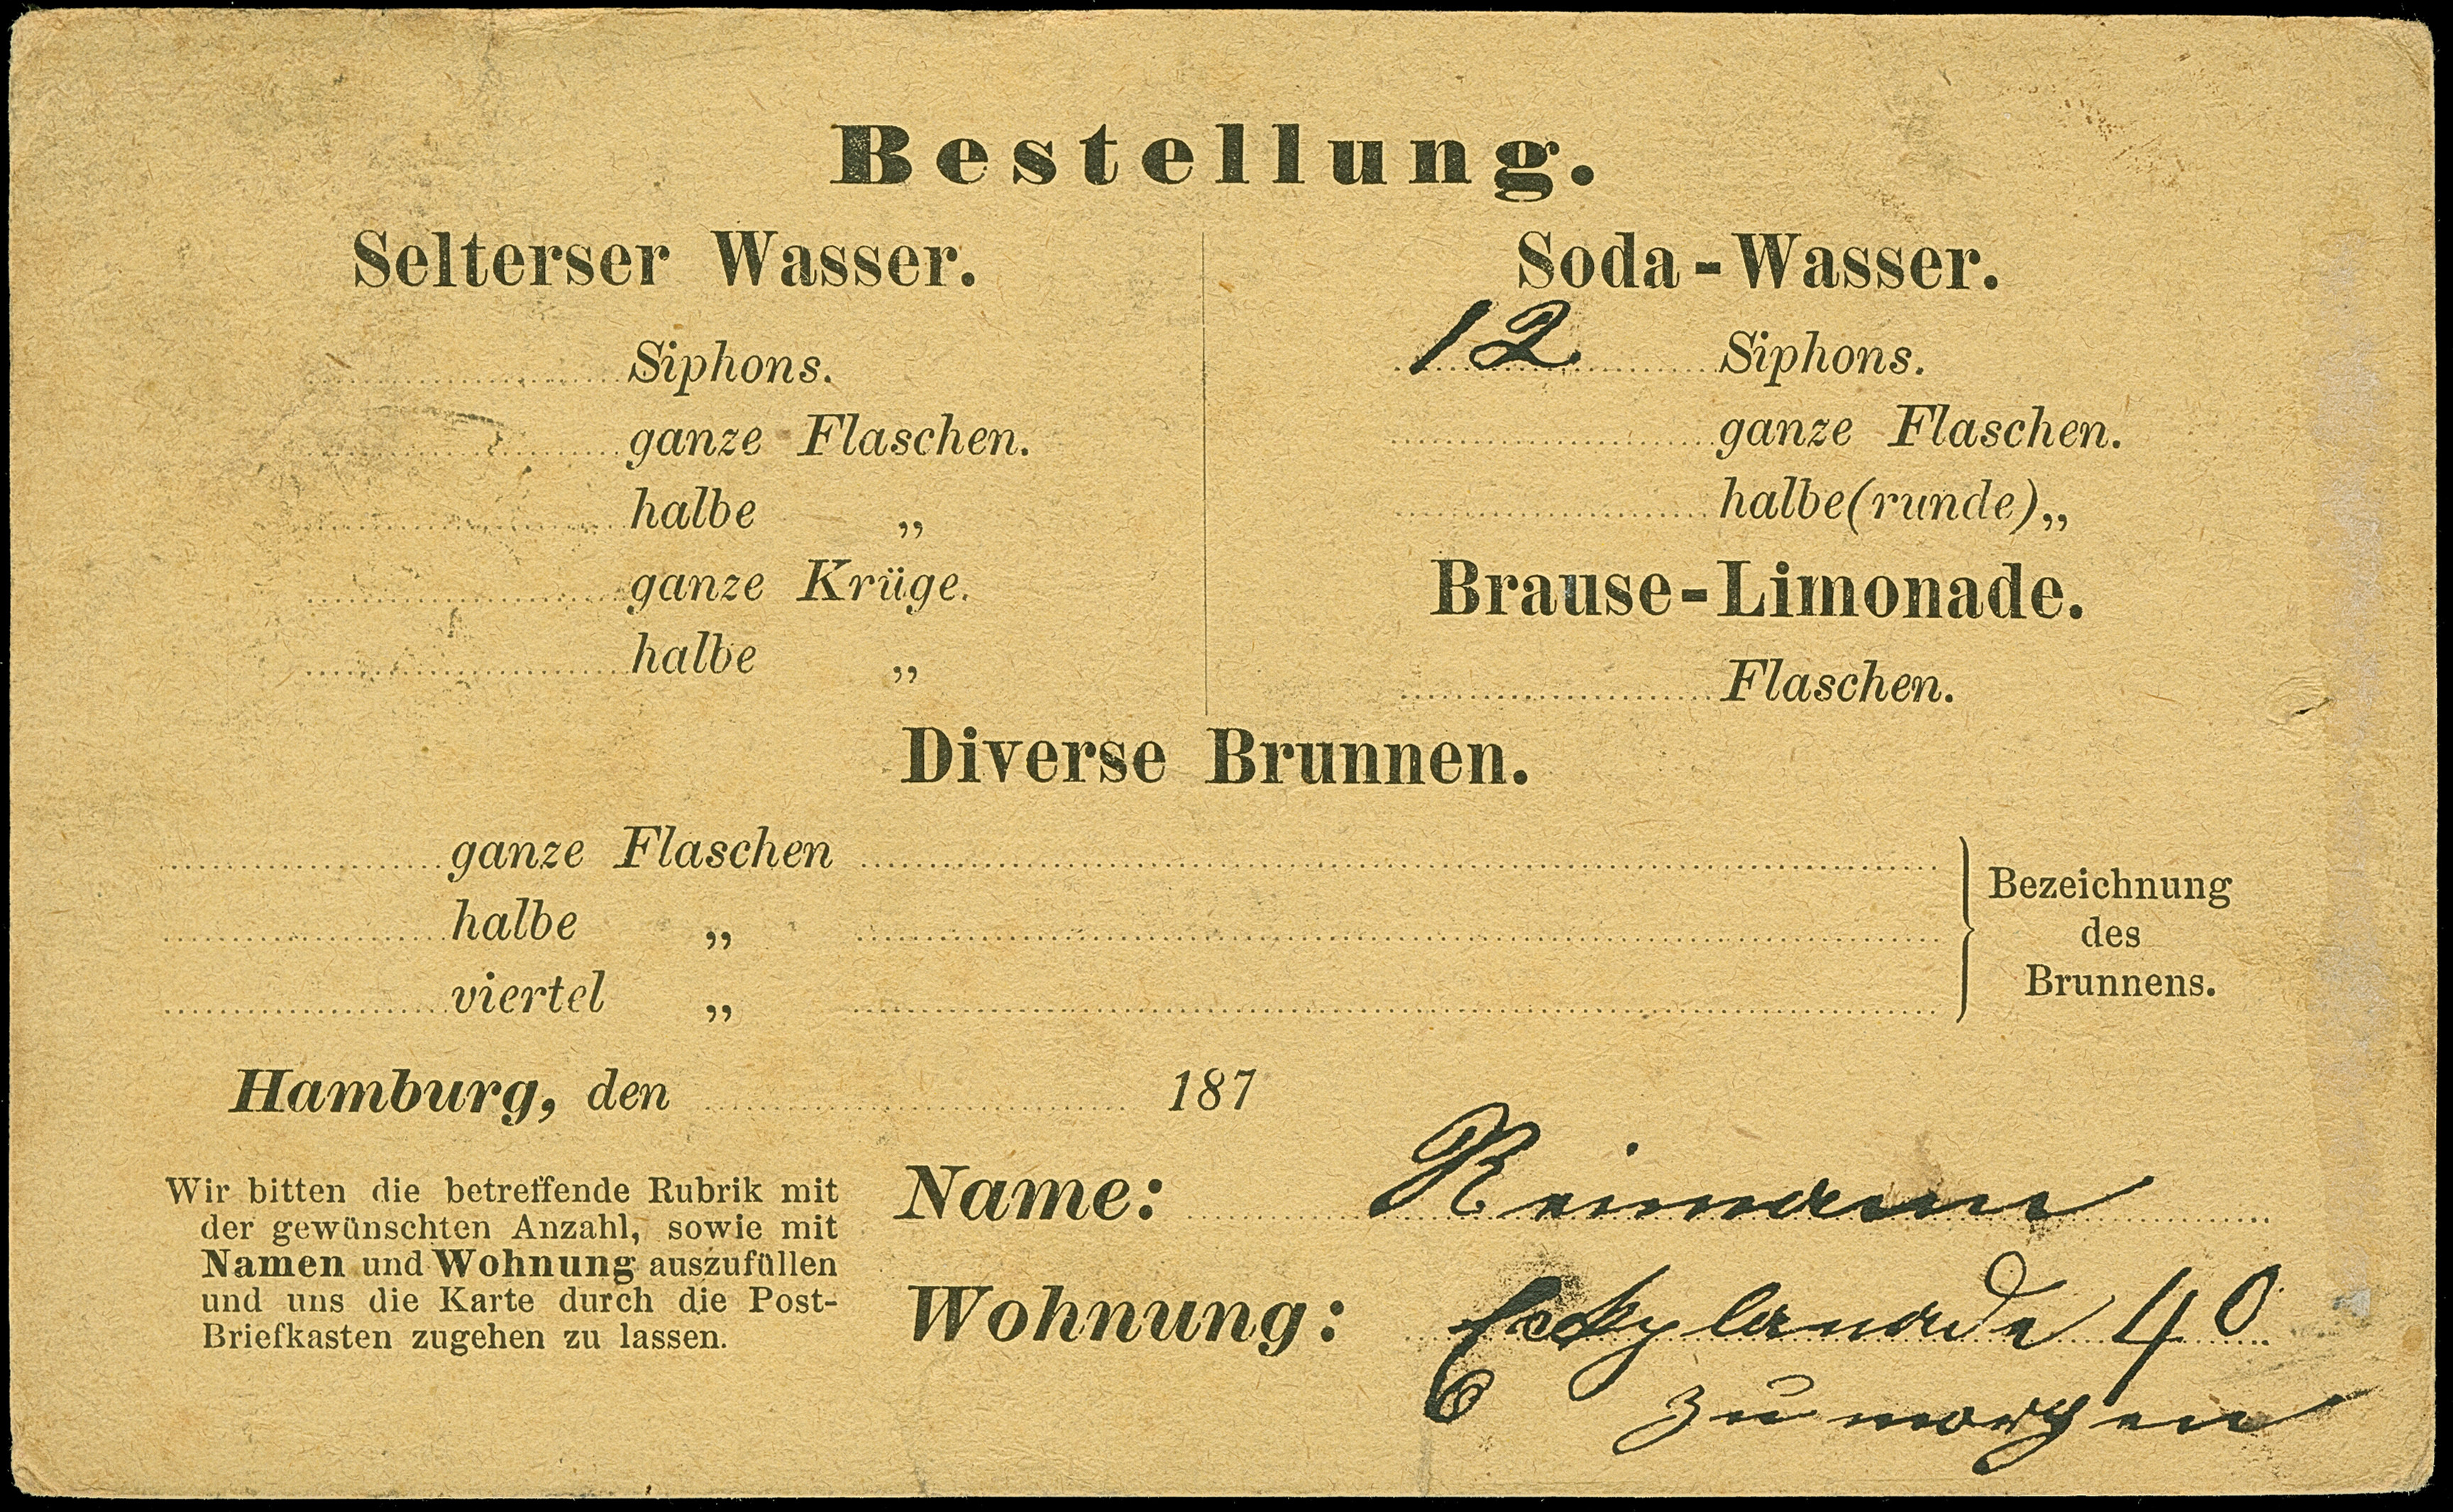 Bestellung.
Selterser Wasser.
Siphons.
ganze Flaschen.
halbe „
ganze Krüge.
halbe „
Soda-Wasser.
12 Siphons.
ganze Flaschen.
halbe (runde) „
Brause-Limonade.
Flaschen.
Diverse Brunnen.
ganze Flaschen
halbe „
viertel „
Bezeichnung
des
Brunnens.
Hamburg, den 187
Wir bitten die betreffende Rubrik mit
der gewünschten Anzahl, sowie mit
Namen und Wohnung auszufüllen
und uns die Karte durch die Post-
Briefkasten zugehen zu lassen.
Name: Reimann
Wohnung: 40
zu morgen